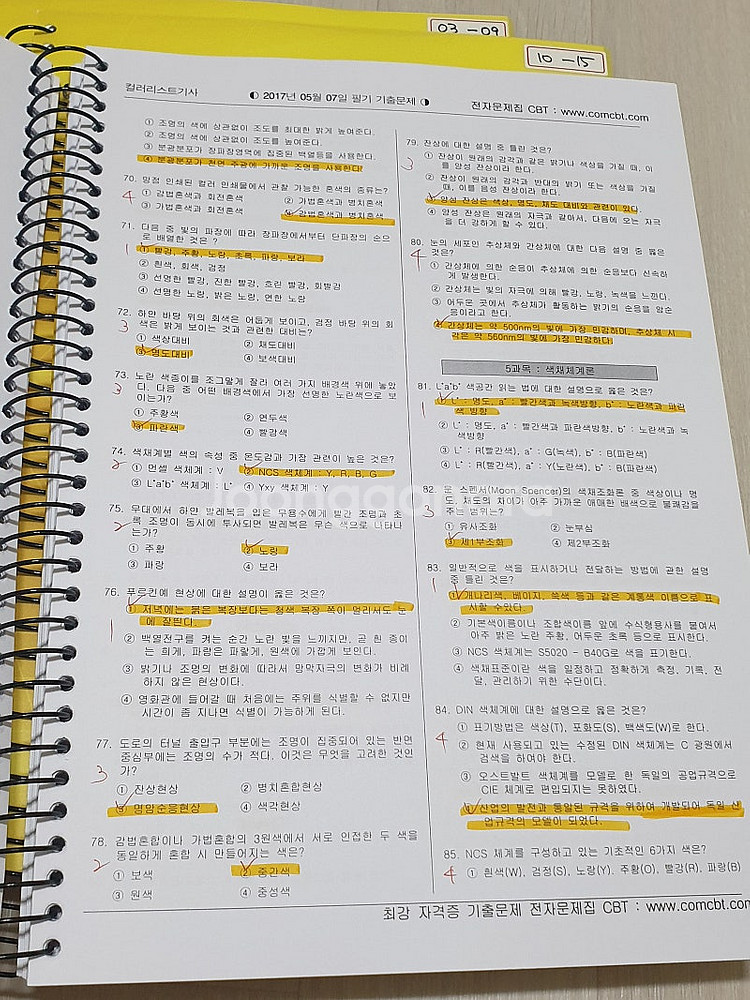 03-09
10-15
컬러리스트기사
2017년 05월 07일 필기 기출문제
전자문제집 CBT : www.comcbt.com
① 조명의 색에 상관없이 조도를 최대한 밝게 높여준다.
② 조명의 색에 상관없이 조도를 높여준다.
③ 분광분포가 장파장영역에 집중된 백열등을 사용한다.
④ 분광분포가 천연 주광에 가까운 조명을 사용한다.
70. 망점 인쇄된 컬러 인쇄물에서 관찰 가능한 혼색의 종류는?
4
① 감법혼색과 회전혼색 ② 감법혼색과 병치혼색
③ 가법혼색과 회전혼색 ④ 가법혼색과 병치혼색
71. 다음 중 빛의 파장에 따라 장파장에서부터 단파장의 순으
로 배열한 것은 ?
1
① 빨강, 주황, 노랑, 초록, 파랑, 보라
② 흰색, 회색, 검정
③ 선명한 빨강, 진한 빨강, 흐린 빨강, 회빨강
④ 선명한 노랑, 밝은 노랑, 연한 노랑
72. 하얀 바탕 위의 회색은 어둡게 보이고, 검정 바탕 위의 회
색은 밝게 보이는 것과 관련한 대비는?
3
① 색상대비 ② 채도대비
③ 명도대비 ④ 보색대비
73. 노란 색종이를 조그맣게 잘라 여러 가지 배경색 위에 놓았
다. 다음 중 어떤 배경색에서 가장 선명한 노란색으로 보
이는가?
3
① 주황색 ② 연두색
③ 파란색 ④ 빨강색
74. 색채계별 색의 속성 중 온도감과 가장 관련이 높은 것은?
2
① 먼셀 색체계 : V ② NCS 색체계 : Y, R, B, G
③ L*a*b* 색체계 : L* ④ Yxy 색체계 : Y
75. 무대에서 하얀 발레복을 입은 무용수에게 빨간 조명과 초
록 조명이 동시에 투사되면 발레복은 무슨 색으로 나타나
는가?
2
① 주황 ② 노랑
③ 파랑 ④ 보라
76. 푸르킨예 현상에 대한 설명이 옳은 것은?
1
① 저녁에는 붉은 복장보다는 청색 복장 쪽이 멀리서도 눈
에 잘띈다.
② 백열전구를 켜는 순간 노란 빛을 느끼지만, 곧 흰 종이
는 희게, 파랑은 파랗게, 원색에 가깝게 보인다.
③ 밝기나 조명의 변화에 따라서 망막자극의 변화가 비례
하지 않은 현상이다.
④ 영화관에 들어갈 때 처음에는 주위를 식별할 수 없지만
시간이 좀 지나면 식별이 가능하게 된다.
77. 도로의 터널 출입구 부분에는 조명이 집중되어 있는 반면
중심부에는 조명의 수가 적다. 이것은 무엇을 고려한 것인
가?
3
① 잔상현상 ② 병치혼합현상
③ 명암순응현상 ④ 색각현상
78. 감법혼합이나 가법혼합의 3원색에서 서로 인접한 두 색을
동일하게 혼합 시 만들어지는 색은?
2
① 보색 ② 중간색
③ 원색 ④ 중성색
79. 잔상에 대한 설명 중 틀린 것은?
3
① 잔상이 원래의 감각과 같은 밝기나 색상을 가질 때, 이
를 양성 잔상이라 한다.
② 잔상이 원래의 감각과 반대의 밝기 또는 색상을 가질
때, 이를 음성 잔상이라 한다.
③ 양성 잔상은 색상, 명도, 채도 대비와 관련이 있다.
④ 양성 잔상은 원래의 자극과 같아서, 다음에 오는 자극
을 더 강하게 할 수 있다.
80. 눈의 세포인 추상체와 간상체에 대한 다음 설명 중 옳은
것은?
4
① 간상체에 의한 순응이 추상체에 의한 순응보다 신속하
게 발생한다.
② 간상체는 빛의 자극에 의해 빨강, 노랑, 녹색을 느낀다.
③ 어두운 곳에서 추상체가 활동하는 밝기의 순응을 암순
응이라고 한다.
④ 간상체는 약 500nm의 빛에 가장 민감하며, 추상체 시
각은 약 560nm의 빛에 가장 민감하다.
5과목 : 색채체계론
81. L*a*b* 색공간 읽는 법에 대한 설명으로 옳은 것은?
1
① L* : 명도, a* : 빨간색과 녹색방향, b* : 노란색과 파란
색 방향
② L* : 명도, a* : 빨간색과 파란색방향, b* : 노란색과 녹
색방향
③ L* : R(빨간색), a* : G(녹색), b* : B(파란색)
④ L* : R(빨간색), a* : Y(노란색), b* : B(파란색)
82. 문 스펜서(Moon Spencer)의 색채조화론 중 색상이나 명
도, 채도의 차이가 아주 가까운 애매한 배색으로 불쾌감을
주는 범위는?
3
① 유사조화 ② 눈부심
③ 제1부조화 ④ 제2부조화
83. 일반적으로 색을 표시하거나 전달하는 방법에 관한 설명
중 틀린 것은?
1
① 개나리색, 베이지, 쑥색 등과 같은 계통색 이름으로 표
시할 수있다.
② 기본색이름이나 조합색이름 앞에 수식형용사를 붙여서
아주 밝은 노란 주황, 어두운 초록 등으로 표시한다.
③ NCS 색체계는 S5020 - B40G로 색을 표기한다.
④ 색채표준이란 색을 일정하고 정확하게 측정, 기록, 전
달, 관리하기 위한 수단이다.
84. DIN 색체계에 대한 설명으로 옳은 것은?
4
① 표기방법은 색상(T), 포화도(S), 백색도(W)로 한다.
② 현재 사용되고 있는 수정된 DIN 색체계는 C 광원에서
검색을 하여야 한다.
③ 오스트발트 색체계를 모델로 한 독일의 공업규격으로
CIE 체계로 편입되지는 못하였다.
④ 산업의 발전과 통일된 규격을 위하여 개발되어 독일 산
업규격의 모델이 되었다.
85. NCS 체계를 구성하고 있는 기초적인 6가지 색은?
4
① 흰색(W), 검정(S), 노랑(Y), 주황(O), 빨강(R), 파랑(B)
최강 자격증 기출문제 전자문제집 CBT : www.comcbt.com